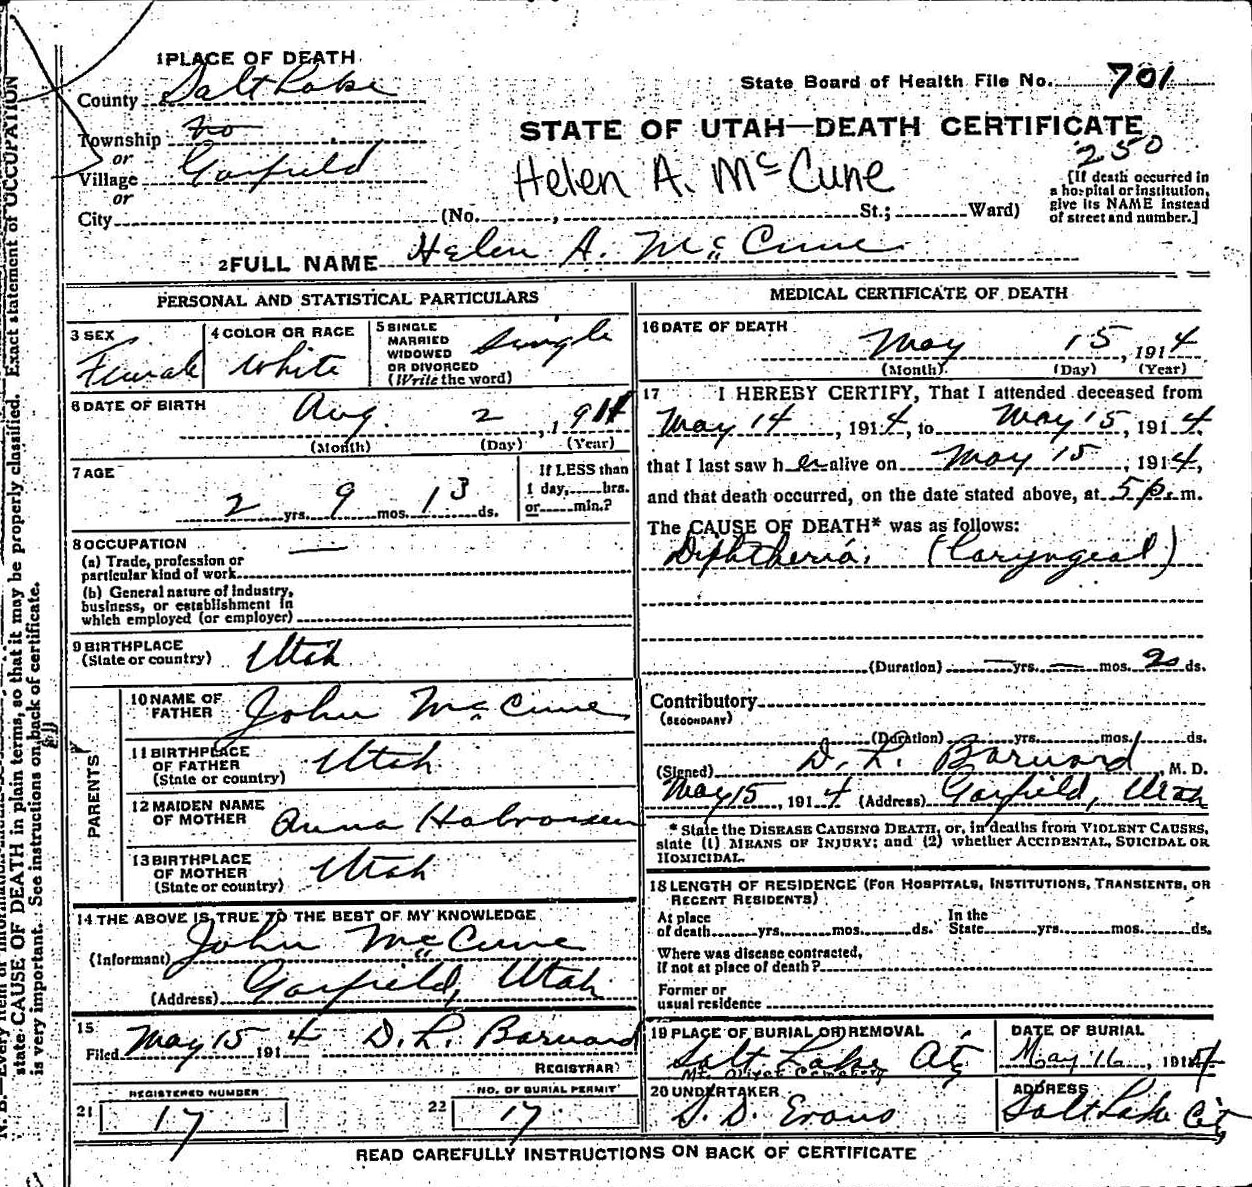 1 PLACE OF DEATH
County Salt Lake
State Board of Health File No. 701
Township no
or
Village Garfield
or
City (No. , St.; Ward)
STATE OF UTAH—DEATH CERTIFICATE
250
Helen A. McCune
[If death occurred in
a hospital or institution,
give its NAME instead
of street and number.]
2 FULL NAME Helen A. McCune
PERSONAL AND STATISTICAL PARTICULARS
3 SEX
Female
4 COLOR OR RACE
White
5 SINGLE
MARRIED
WIDOWED
OR DIVORCED
(Write the word)
Single
6 DATE OF BIRTH
Aug. 2, 1911
(Month) (Day) (Year)
7 AGE
2 yrs. 9 mos. 13 ds.
If LESS than
1 day, hrs.
or min.?
8 OCCUPATION
(a) Trade, profession or
particular kind of work
(b) General nature of Industry,
business, or establishment in
which employed (or employer)
9 BIRTHPLACE
(State or country) Utah
PARENTS
10 NAME OF
FATHER John McCune
11 BIRTHPLACE
OF FATHER
(State or country) Utah
12 MAIDEN NAME
OF MOTHER Anna Halvorsen
13 BIRTHPLACE
OF MOTHER
(State or country) Utah
14 THE ABOVE IS TRUE TO THE BEST OF MY KNOWLEDGE
(Informant) John McCune
(Address) Garfield, Utah
15
Filed May 15 1914 D. L. Barnard
REGISTRAR
REGISTERED NUMBER
21 17
NO. OF BURIAL PERMIT
22 17
MEDICAL CERTIFICATE OF DEATH
16 DATE OF DEATH
May 15, 1914
(Month) (Day) (Year)
17 I HEREBY CERTIFY, That I attended deceased from
May 14, 1914, to May 15, 1914
that I last saw her alive on May 15, 1914,
and that death occurred, on the date stated above, at 5 p. m.
The CAUSE OF DEATH* was as follows:
Diphtheria. (Laryngeal)
(Duration) — yrs. — mos. 2 ds.
Contributory
(SECONDARY)
(Duration) yrs. mos. ds.
(Signed) D. L. Barnard, M. D.
May 15, 1914 (Address) Garfield, Utah
* State the DISEASE CAUSING DEATH, or, in deaths from VIOLENT CAUSES,
state (1) MEANS OF INJURY; and (2) whether ACCIDENTAL, SUICIDAL OR
HOMICIDAL.
18 LENGTH OF RESIDENCE (FOR HOSPITALS, INSTITUTIONS, TRANSIENTS, OR
RECENT RESIDENTS)
At place
of death yrs. mos. ds.
In the
State yrs. mos. ds.
Where was disease contracted,
if not at place of death?
Former or
usual residence
19 PLACE OF BURIAL OR REMOVAL
Salt Lake City
Mt. Olivet Cemetery
DATE OF BURIAL
May 16, 1914
20 UNDERTAKER
S. D. Evans
ADDRESS
Salt Lake City
READ CAREFULLY INSTRUCTIONS ON BACK OF CERTIFICATE
N. B.—Every item of information
state CAUSE OF DEATH in plain terms, so that it may be properly classified. Exact statement of OCCUPATION
is very important. See instructions on back of certificate.